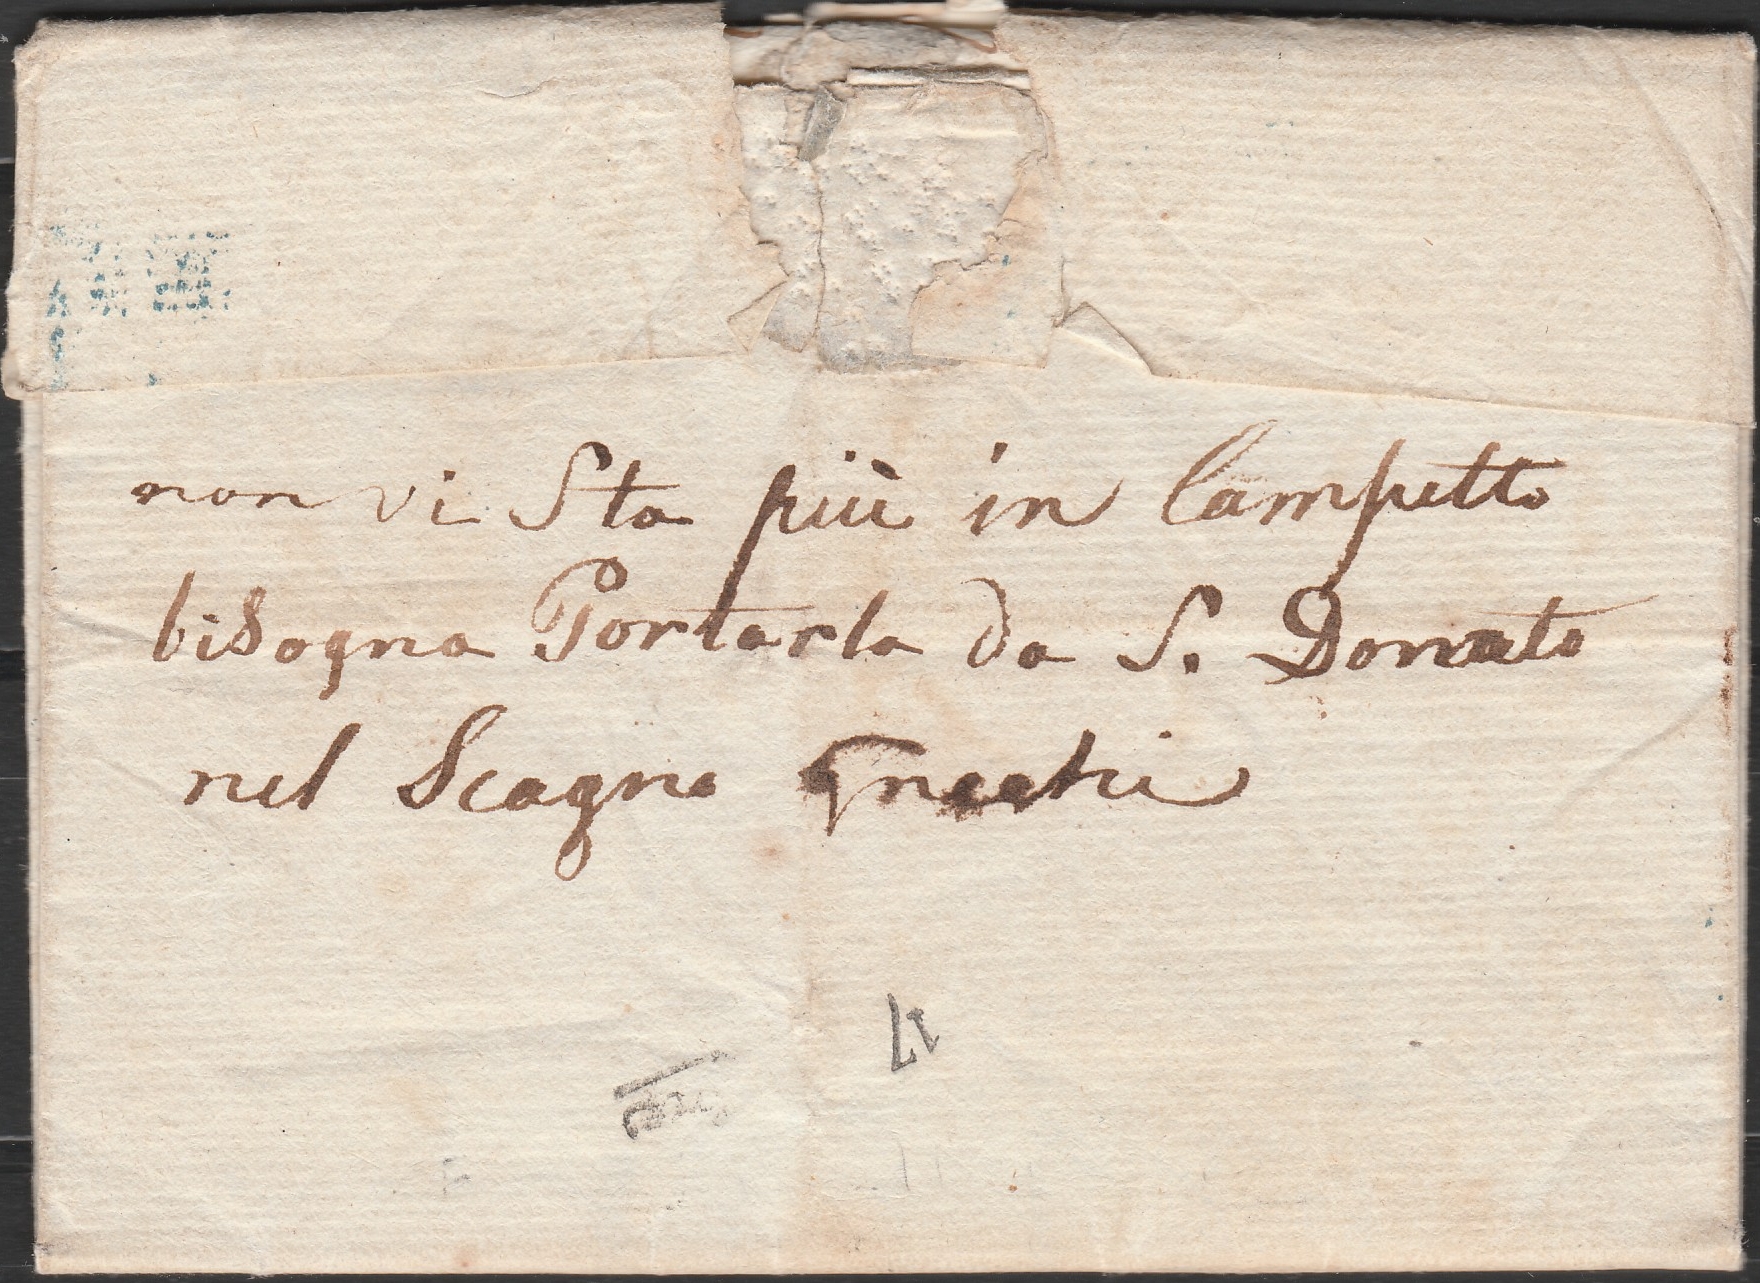 non vi Sta più in Campetto
bisogna Portarla da S. Donato
nel Scagno
17